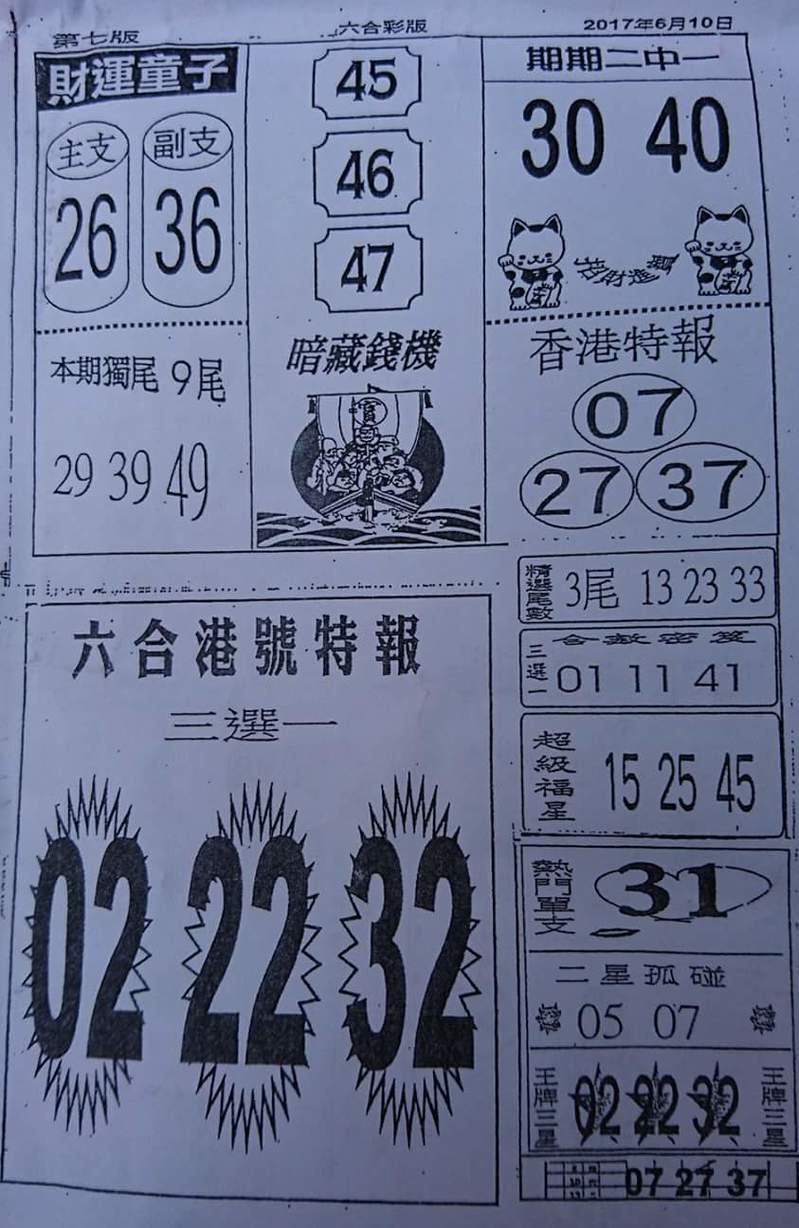 第七版
六合彩版
2017年6月10日
財運童子
主支
副支
26
36
本期獨尾 9尾
29 39 49
45
46
47
暗藏錢機
寶
期期二中一
30 40
香港特報
07
27 37
六合港號特報
三選一
02 22 32
精選尾數
3尾 13 23 33
三選一
01 11 41
超級福星
15 25 45
熱門單支
31
二星孤碰
05 07
王牌三星
02 22 32
王牌三星
07 27 37